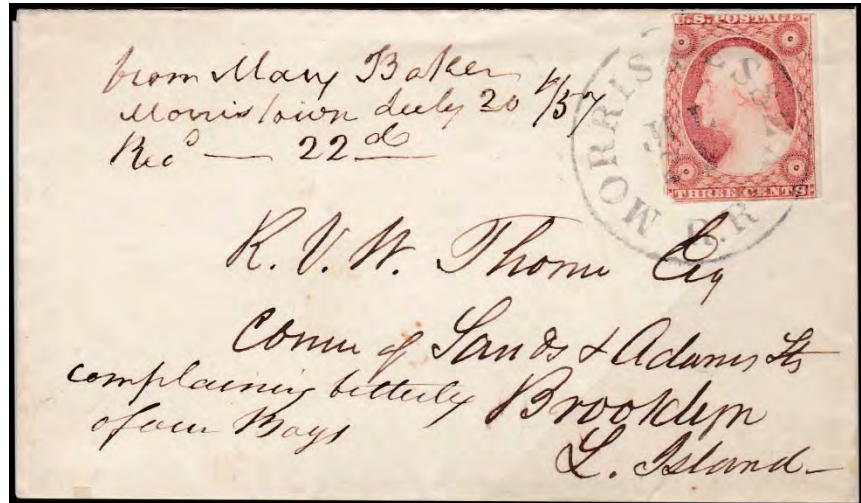 from Mary Baker
Morristown July 20 /57
Recd — 22d
U.S. POSTAGE.
THREE CENTS.
MORRIS & ESSEX R.R
JUL
R. V. W. Thorne Esq
Corner of Sands & Adams Sts
Brooklyn
L. Island
complaining bitterly
of our Boys